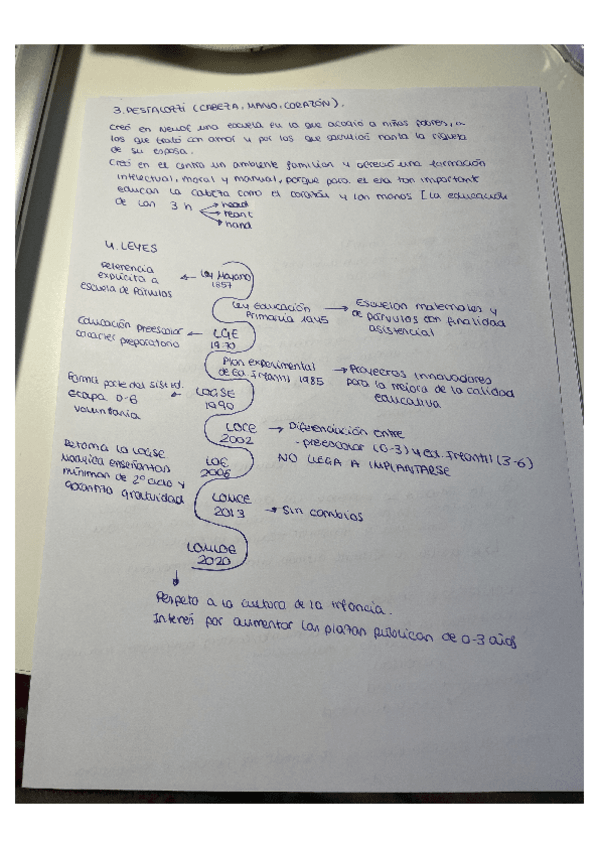 3. PESTALOZZI (CABEZA, MANO, CORAZÓN).
Creó en Neuhof una escuela en la que acogió a niños pobres, a
los que trató con amor y por los que sacrificó hasta la riqueza
de su esposa.
Creó en el centro un ambiente familiar y ofreció una formación
intelectual, moral y manual, porque para él era tan importante
educar la cabeza como el corazón y las manos [la educación
de las 3 h → head
→ heart
→ hand
4. LEYES
Ley Moyano
1857
Referencia
explícita a
escuela de Párvulos
Ley Educación
Primaria 1945
Escuelas maternales y
de párvulos con finalidad
asistencial
LGE
1970
Educación preescolar
carácter preparatorio
Plan experimental
de Ed. Infantil 1985
Proyectos innovadores
para la mejora de la calidad
educativa
LOGSE
1990
Forma parte del sist. ed.
etapa 0-6
voluntaria
LOCE
2002
Diferenciación entre
preescolar (0-3) y ed. infantil (3-6)
NO LLEGA A IMPLANTARSE
LOE
2006
Retoma la LOGSE
Modifica enseñanzas
mínimas de 2º ciclo y
garantiza gratuidad
LOMCE
2013
→ Sin cambios
LOMLOE
2020
Respeto a la cultura de la infancia.
Interés por aumentar las plazas públicas de 0-3 años